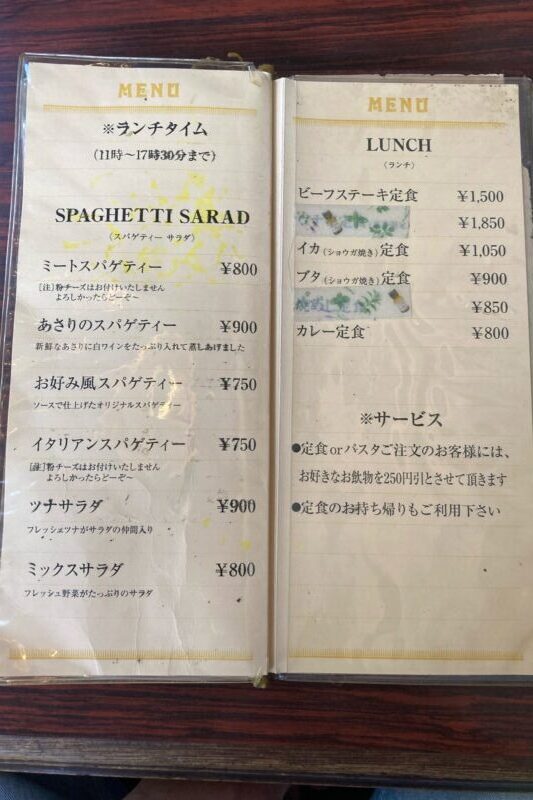 MENU
※ランチタイム
（11時〜17時30分まで）
SPAGHETTI SARAD
（スパゲティー サラダ）
ミートスパゲティー ¥800
［注］粉チーズはお付けいたしません
よろしかったらどーぞ〜
あさりのスパゲティー ¥900
新鮮なあさりに白ワインをたっぷり入れて蒸しあげました
お好み風スパゲティー ¥750
ソースで仕上げたオリジナルスパゲティー
イタリアンスパゲティー ¥750
［註］粉チーズはお付けいたしません
よろしかったらどーぞ〜
ツナサラダ ¥900
フレッシュツナがサラダの仲間入り
ミックスサラダ ¥800
フレッシュ野菜がたっぷりのサラダ
MENU
LUNCH
（ランチ）
ビーフステーキ定食 ¥1,500
¥1,850
イカ（ショウガ焼き）定食 ¥1,050
ブタ（ショウガ焼き）定食 ¥900
¥850
カレー定食 ¥800
※サービス
●定食orパスタご注文のお客様には、
お好きなお飲物を250円引とさせて頂きます
●定食のお持ち帰りもご利用下さい